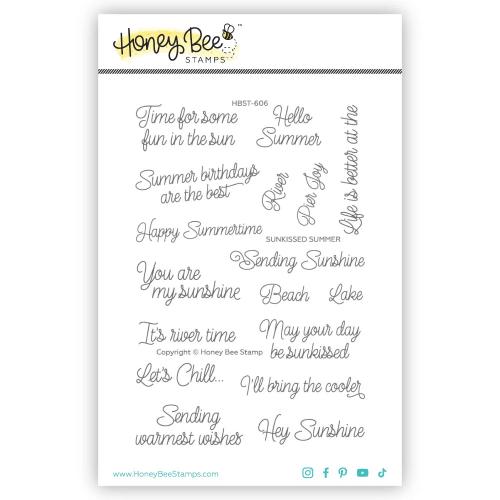 Honey Bee
STAMPS
HBST-606
Time for some
fun in the sun
Hello
Summer
Life is better at the
Summer birthdays
are the best
River
Pier Joy
Happy Summertime
SUNKISSED SUMMER
Sending Sunshine
You are
my sunshine
Beach
Lake
It's river time
May your day
be sunkissed
Copyright © Honey Bee Stamp
Let's Chill...
I'll bring the cooler
Sending
warmest wishes
Hey Sunshine
www.HoneyBeeStamps.com